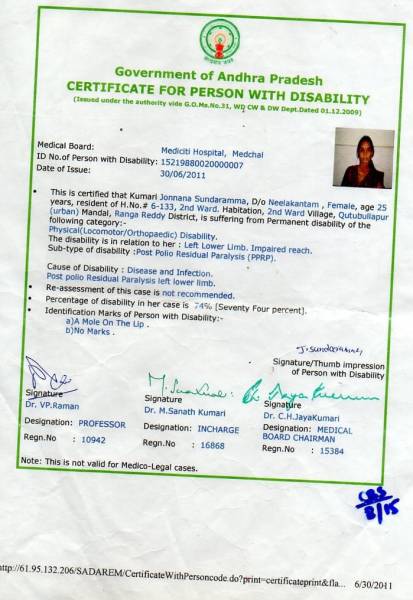 Government of Andhra Pradesh
CERTIFICATE FOR PERSON WITH DISABILITY
(Issued under the authority vide G.O.Ms.No.31, WD CW & DW Dept.Dated 01.12.2009)
Medical Board: Mediciti Hospital, Medchal
ID No.of Person with Disability: 15219880020000007
Date of Issue: 30/06/2011
• This is certified that Kumari Jonnana Sundaramma, D/o Neelakantam , Female, age 25
years, resident of H.No.# 6-133, 2nd Ward. Habitation, 2nd Ward Village, Qutubullapur
(urban) Mandal, Ranga Reddy District, is suffering from Permanent disability of the
following category:-
Physical(Locomotor/Orthopaedic) Disability.
The disability is in relation to her : Left Lower Limb. Impaired reach.
Sub-type of disability :Post Polio Residual Paralysis (PPRP).
Cause of Disability : Disease and Infection.
Post polio Residual Paralysis left lower limb.
• Re-assessment of this case is not recommended.
• Percentage of disability in her case is 74% [Seventy Four percent].
• Identification Marks of Person with Disability:-
a)A Mole On The Lip .
b)No Marks .
Signature/Thumb impression
of Person with Disability
Signature
Dr. VP.Raman
Designation: PROFESSOR
Regn.No : 10942
Signature
Dr. M.Sanath Kumari
Designation: INCHARGE
Regn.No : 16868
Signature
Dr. C.H.JayaKumari
Designation: MEDICAL
BOARD CHAIRMAN
Regn.No : 15384
Note: This is not valid for Medico-Legal cases.
http://61.95.132.206/SADAREM/CertificateWithPersoncode.do?print=certificateprint&fla... 6/30/2011